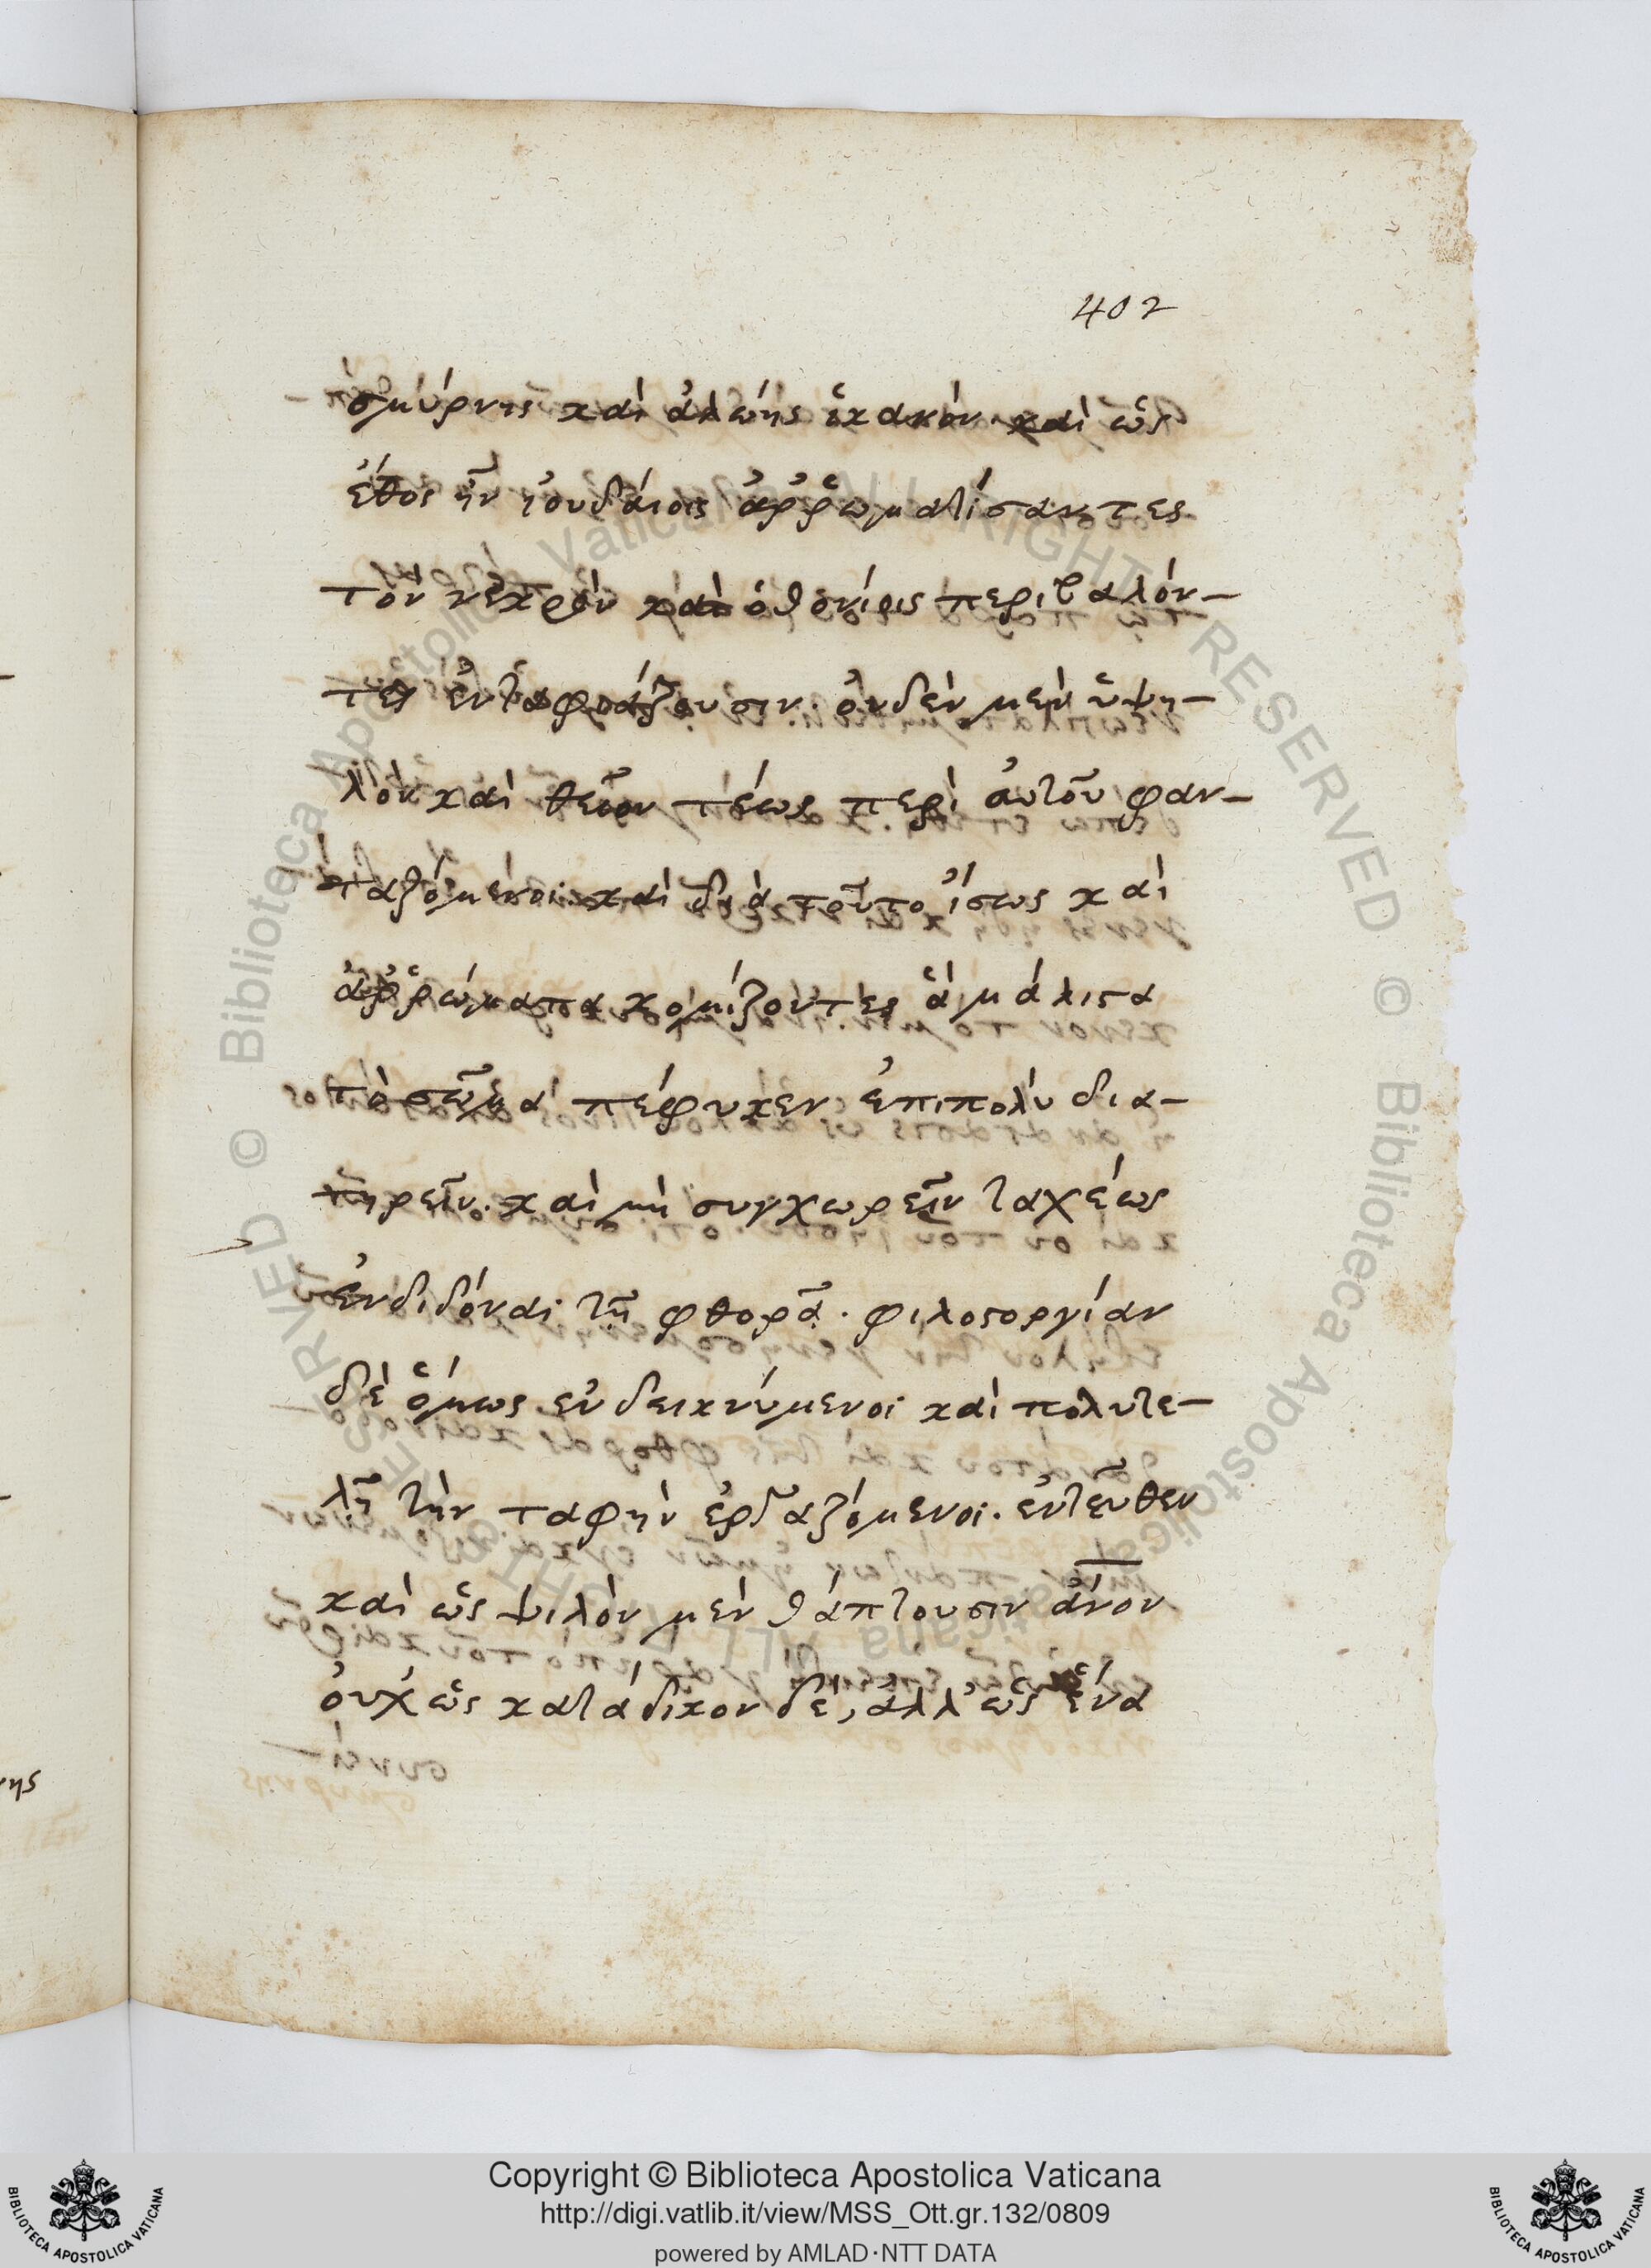 402
σμύρνης καὶ ἀλώης ἑκατόν· καὶ ὡς
ἔθος ἦν ἠουδάιοις ἀῤῥωματίσαντες
τὸν νεκρὸν καὶ ὀθονίοις περιβαλόν-
τες ἐνταφιάζουσιν· ὀυδὲν μὲν ὑψη-
λὸν καὶ θεῖον τέως περὶ ἀυτοῦ φαν-
ταζόμενοι· καὶ διὰ τοῦτο ἴσως καὶ
ἀῤῥώματα κομίζοντες ἃ μάλιστα
τὸ σῶμα πέφυκεν ἐπιπολὺ δια-
τηρεῖν· καὶ μὴ συγχωρεῖν ταχέως
ἐνδιδόναι τῇ φθορᾷ· φιλοστοργίαν
δὲ ὅμως ἐνδεικνύμενοι καὶ πολυτε-
λῆ τὴν ταφὴν ἐργαζόμενοι· ἐντεῦθεν
καὶ ὡς ψιλὸν μὲν θάπτουσιν ἄνον
ὀυχ ὡς κατάδικον δὲ, ἀλλ' ὡς ἕνα
νης
Copyright © Biblioteca Apostolica Vaticana
http://digi.vatlib.it/view/MSS_Ott.gr.132/0809
powered by AMLAD·NTT DATA
BIBLIOTECA APOSTOLICA VATICANA
BIBLIOTECA APOSTOLICA VATICANA